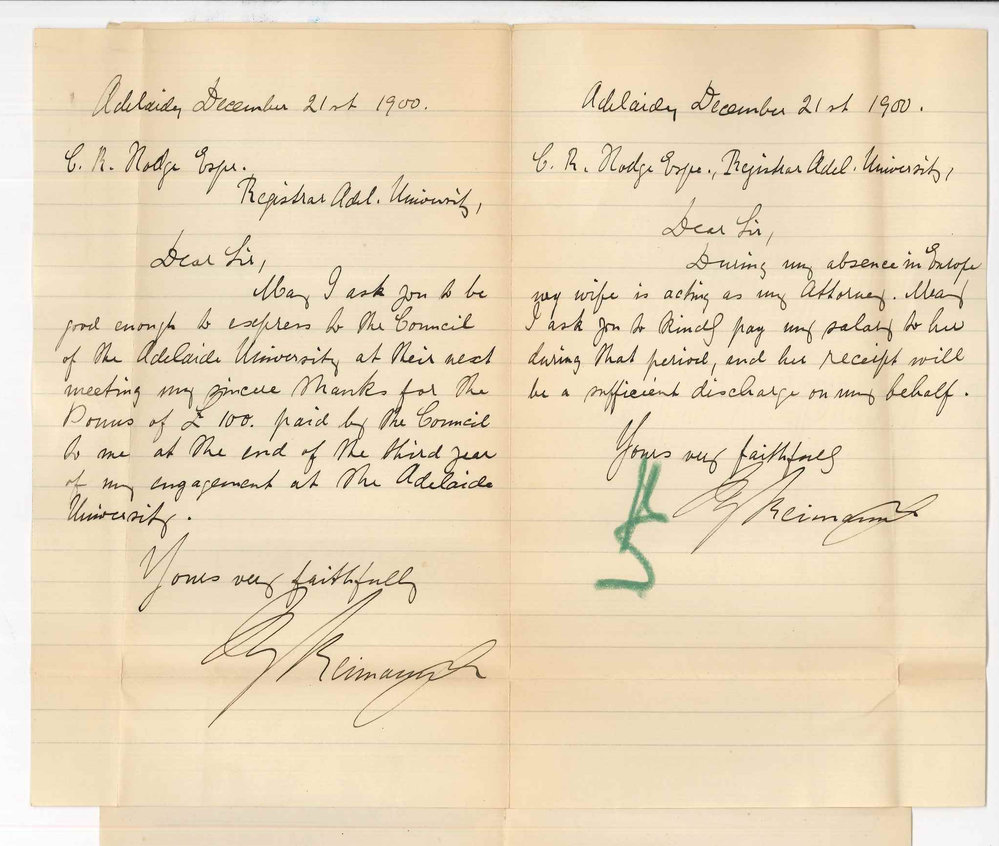 Adelaide, December 21st 1900.
C. R. Hodge Esqre.
Registrar Adel. University,
Dear Sir,
May I ask you to be
good enough to express to the Council
of the Adelaide University at their next
meeting my sincere thanks for the
Bonus of £ 100. paid by the Council
to me at the end of the third year
of my engagement at the Adelaide
University.
Yours very faithfully
Reimann
Adelaide, December 21st 1900.
C. R. Hodge Esqre., Registrar Adel. University,
Dear Sir,
During my absence in Europe
my wife is acting as my Attorney. May
I ask you to kindly pay my salary to her
during that period, and her receipt will
be a sufficient discharge on my behalf.
Yours very faithfully
Reimann